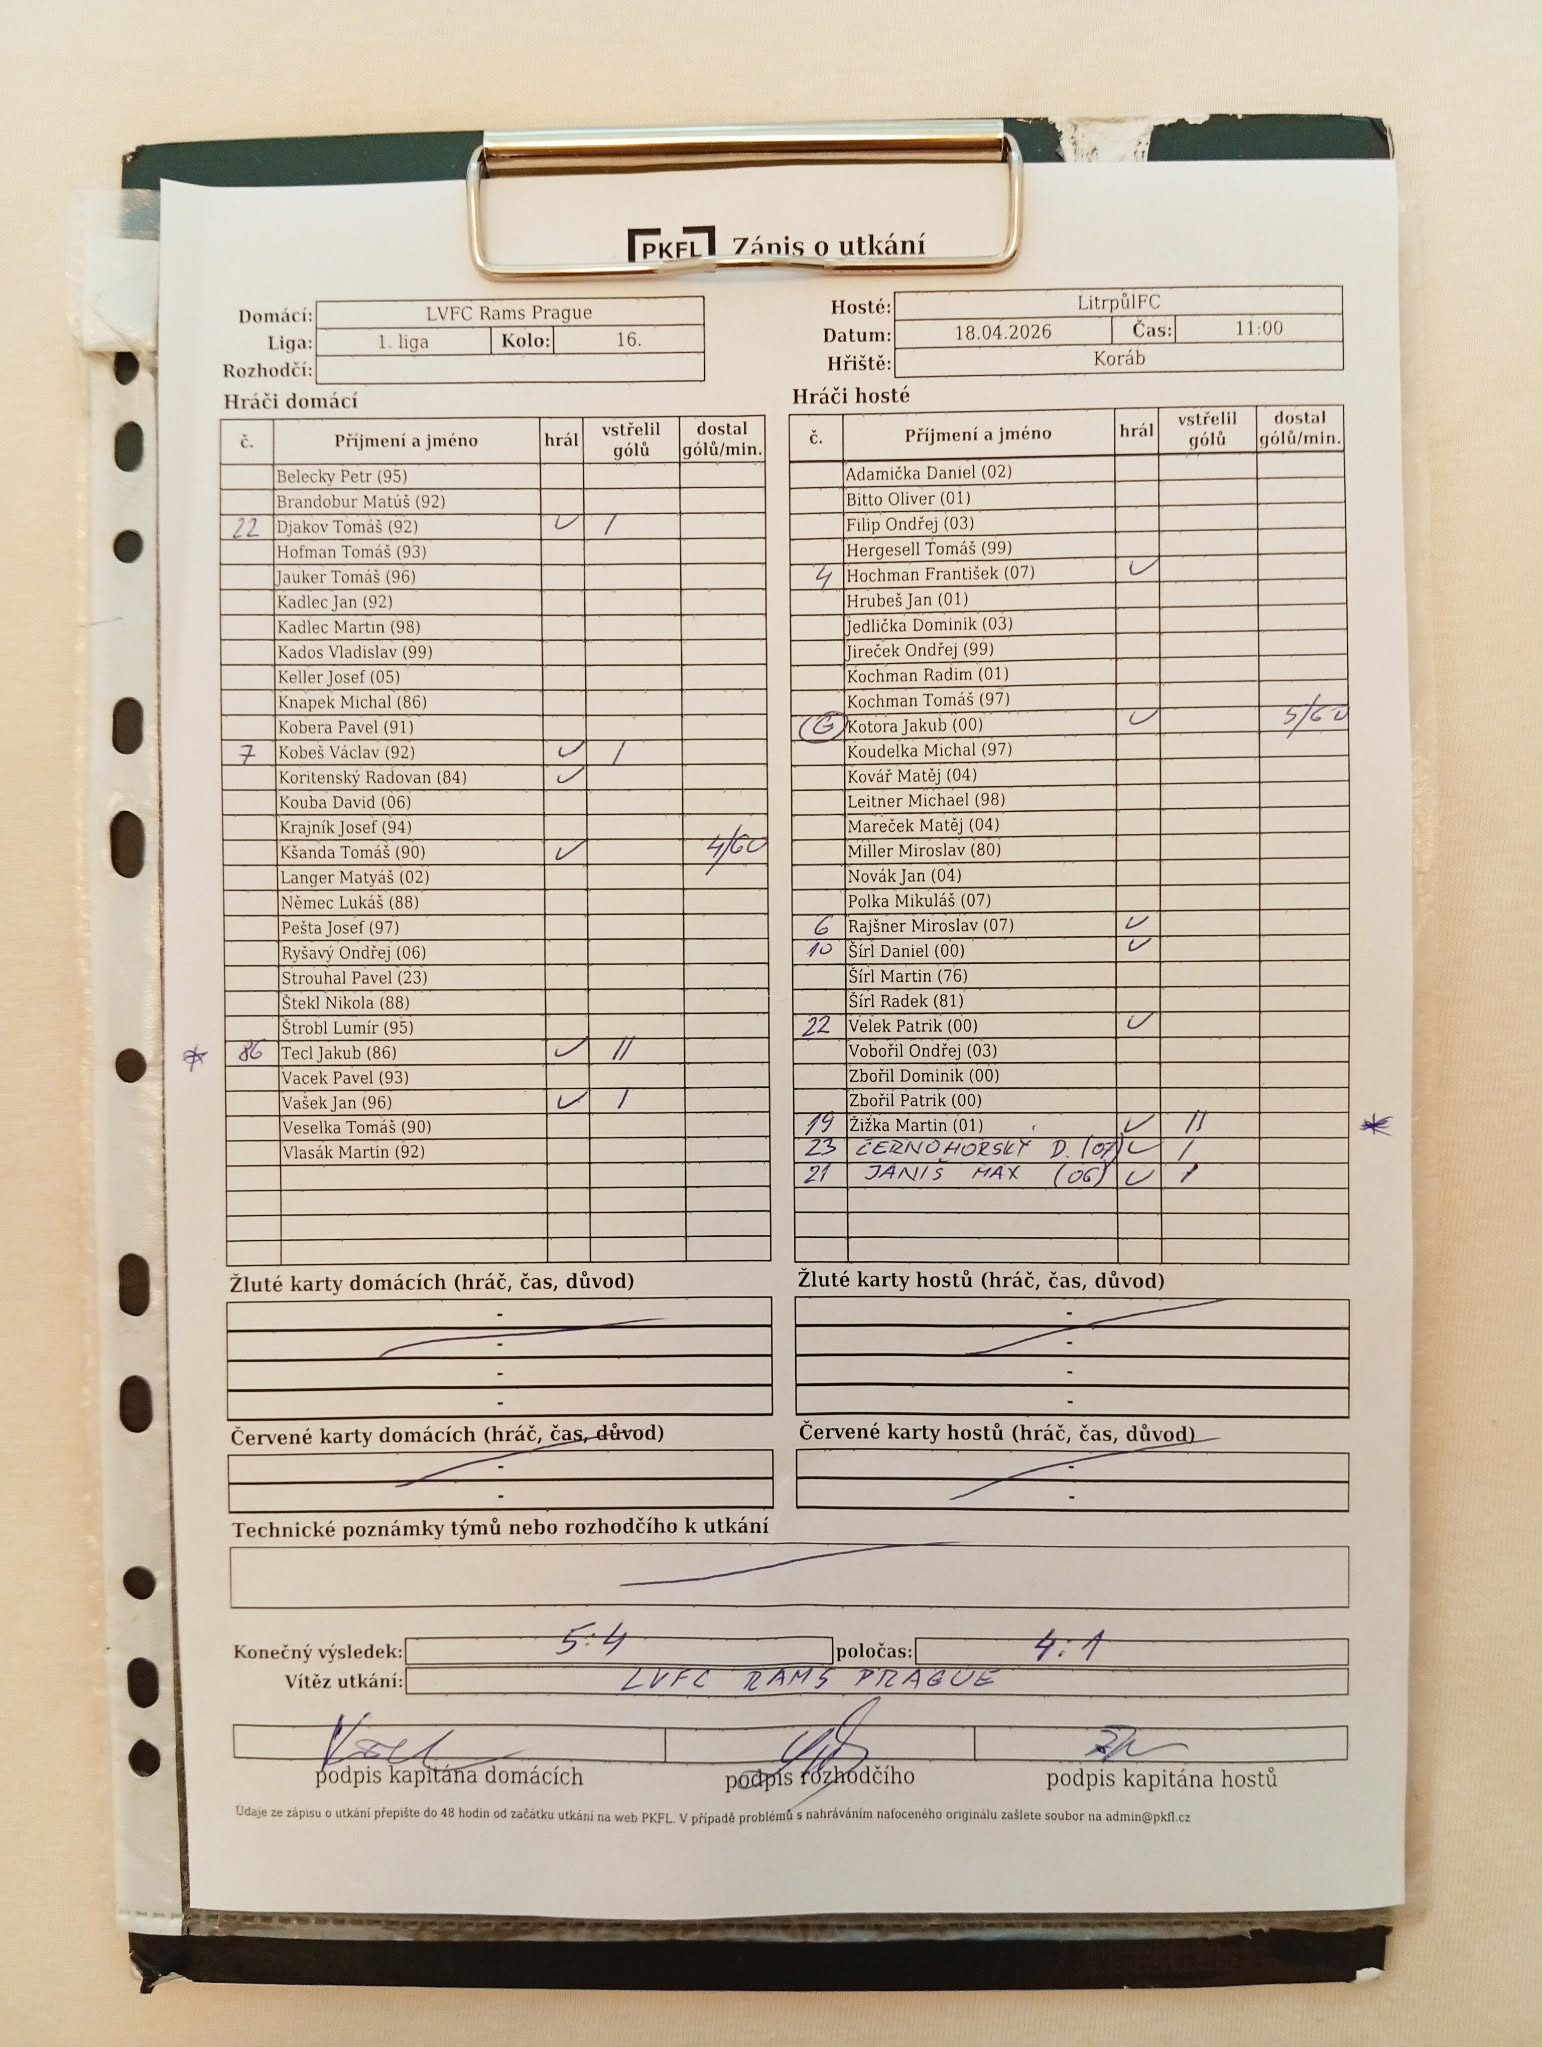 PKFL Zápis o utkání
Domácí: LVFC Rams Prague
Liga: 1. liga Kolo: 16.
Rozhodčí:
Hosté: LitrpůlFC
Datum: 18.04.2026 Čas: 11:00
Hřiště: Koráb
Hráči domácí
č. Příjmení a jméno hrál vstřelil gólů dostal gólů/min.
Belecky Petr (95)
Brandobur Matúš (92)
22 Djakov Tomáš (92) ✓ I
Hofman Tomáš (93)
Jauker Tomáš (96)
Kadlec Jan (92)
Kadlec Martin (98)
Kados Vladislav (99)
Keller Josef (05)
Knapek Michal (86)
Kobera Pavel (91)
7 Kobeš Václav (92) ✓ I
Koritenský Radovan (84) ✓
Kouba David (06)
Krajník Josef (94)
Kšanda Tomáš (90) ✓ 4/60
Langer Matyáš (02)
Němec Lukáš (88)
Pešta Josef (97)
Ryšavý Ondřej (06)
Strouhal Pavel (23)
Štekl Nikola (88)
Štrobl Lumír (95)
* 86 Tecl Jakub (86) ✓ II
Vacek Pavel (93)
Vašek Jan (96) ✓ I
Veselka Tomáš (90)
Vlasák Martin (92)
Hráči hosté
č. Příjmení a jméno hrál vstřelil gólů dostal gólů/min.
Adamička Daniel (02)
Bitto Oliver (01)
Filip Ondřej (03)
Hergesell Tomáš (99)
4 Hochman František (07) ✓
Hrubeš Jan (01)
Jedlička Dominik (03)
Jireček Ondřej (99)
Kochman Radim (01)
Kochman Tomáš (97)
G Kotora Jakub (00) ✓ 5/60
Koudelka Michal (97)
Kovář Matěj (04)
Leitner Michael (98)
Mareček Matěj (04)
Miller Miroslav (80)
Novák Jan (04)
Polka Mikuláš (07)
6 Rajšner Miroslav (07) ✓
10 Šírl Daniel (00) ✓
Šírl Martin (76)
Šírl Radek (81)
22 Velek Patrik (00) ✓
Vobořil Ondřej (03)
Zbořil Dominik (00)
Zbořil Patrik (00)
19 Žižka Martin (01) ✓ II *
23 ČERNOHORSKÝ D. (07) ✓ I
21 JÁNIŠ MAX (06) ✓ I
Žluté karty domácích (hráč, čas, důvod)
-
-
-
-
Žluté karty hostů (hráč, čas, důvod)
-
-
-
-
Červené karty domácích (hráč, čas, důvod)
-
-
Červené karty hostů (hráč, čas, důvod)
-
-
Technické poznámky týmů nebo rozhodčího k utkání
Konečný výsledek: 5:4 poločas: 4:1
Vítěz utkání: LVFC RAMS PRAGUE
podpis kapitána domácích podpis rozhodčího podpis kapitána hostů
Údaje ze zápisu o utkání přepište do 48 hodin od začátku utkání na web PKFL. V případě problémů s nahráváním nafoceného originálu zašlete soubor na admin@pkfl.cz